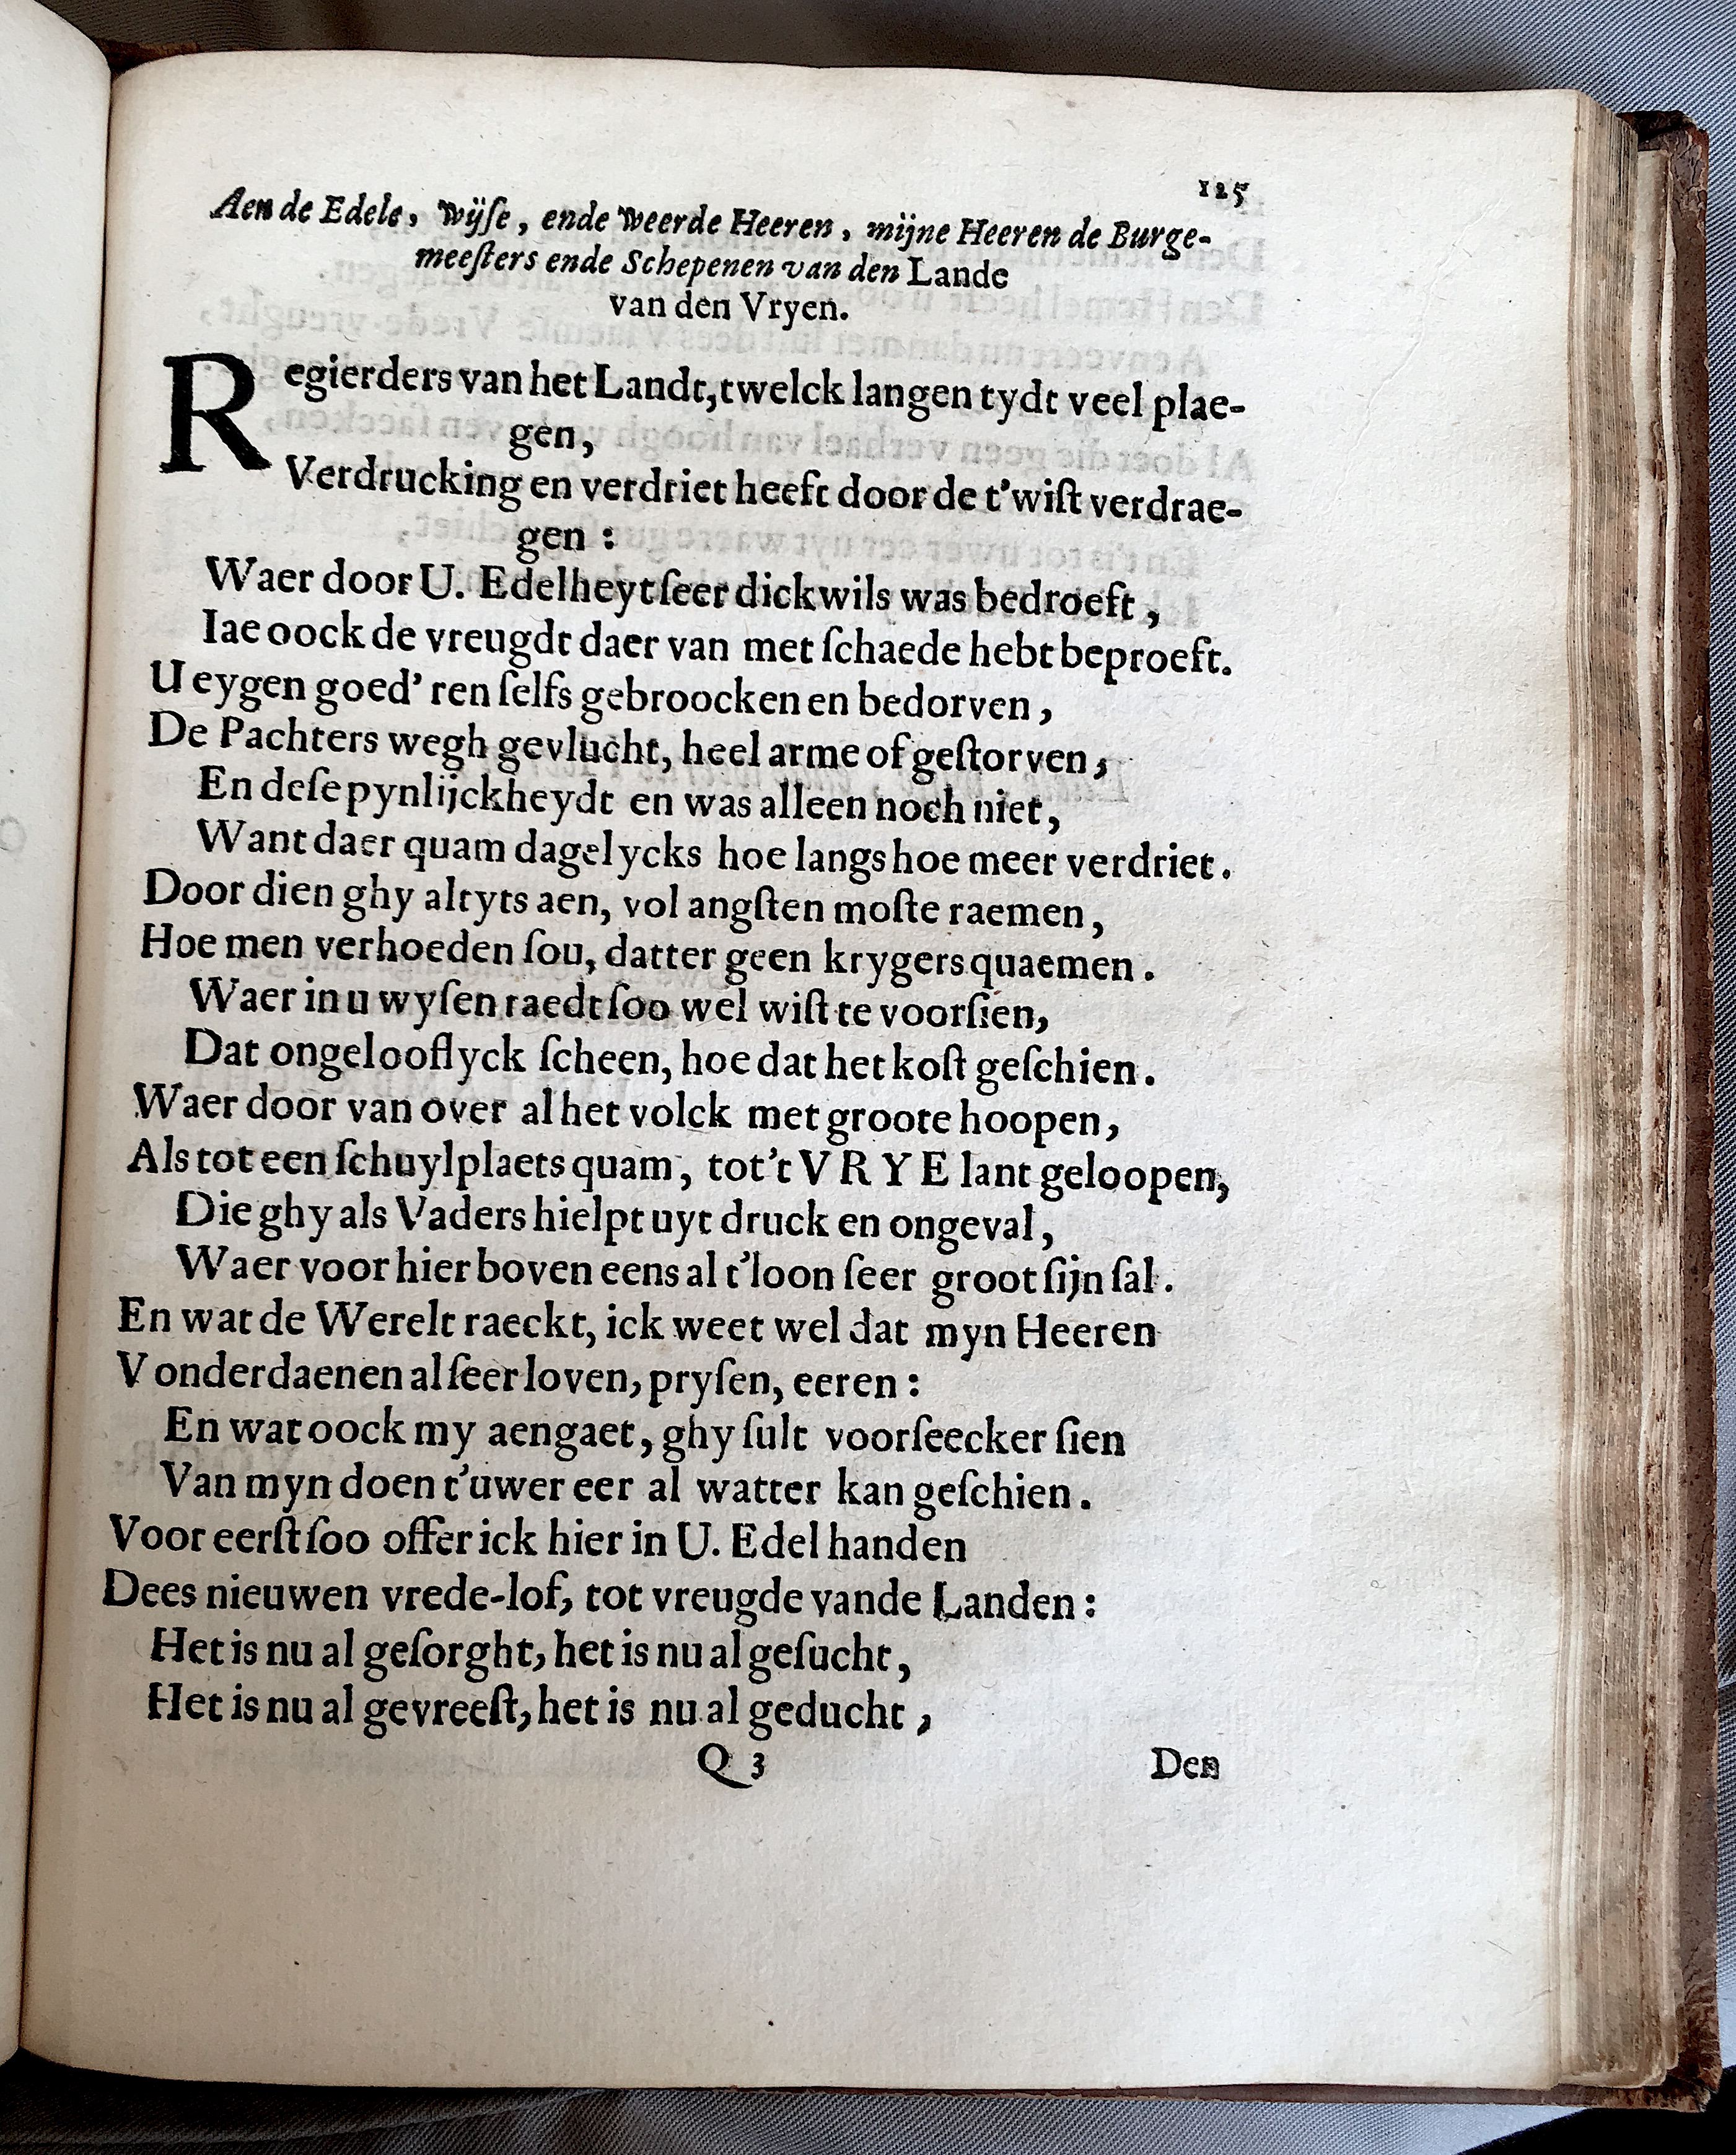 125
Aen de Edele, wijſe, ende weerde Heeren, mijne Heeren de Burge-
meeſters ende Schepenen van den Lande
van den Vryen.
Regierders van het Landt, twelck langen tydt veel plae-
gen,
Verdrucking en verdriet heeft door de t'wiſt verdrae-
gen:
Waer door U. Edelheyt ſeer dickwils was bedroeft,
Iae oock de vreugdt daer van met ſchaede hebt beproeft.
U eygen goed'ren ſelfs gebroocken en bedorven,
De Pachters wegh gevlucht, heel arme of geſtorven,
En deſe pynlijckheydt en was alleen noch niet,
Want daer quam dagelycks hoe langs hoe meer verdriet.
Door dien ghy altyts aen, vol angſten moſte raemen,
Hoe men verhoeden ſou, datter geen krygers quaemen.
Waer in u wyſen raedt ſoo wel wiſt te voorſien,
Dat ongelooflyck ſcheen, hoe dat het koſt geſchien.
Waer door van over al het volck met groote hoopen,
Als tot een ſchuylplaets quam, tot't VRYE lant geloopen,
Die ghy als Vaders hielpt uyt druck en ongeval,
Waer voor hier boven eens al t'loon ſeer groot ſijn ſal.
En wat de Werelt raeckt, ick weet wel dat myn Heeren
V onderdaenen al ſeer loven, pryſen, eeren:
En wat oock my aengaet, ghy ſult voorſeecker ſien
Van myn doen t'uwer eer al watter kan geſchien.
Voor eerſt ſoo offer ick hier in U. Edel handen
Dees nieuwen vrede-lof, tot vreugde vande Landen:
Het is nu al geſorght, het is nu al geſucht,
Het is nu al gevreeſt, het is nu al geducht,
Q 3 Den